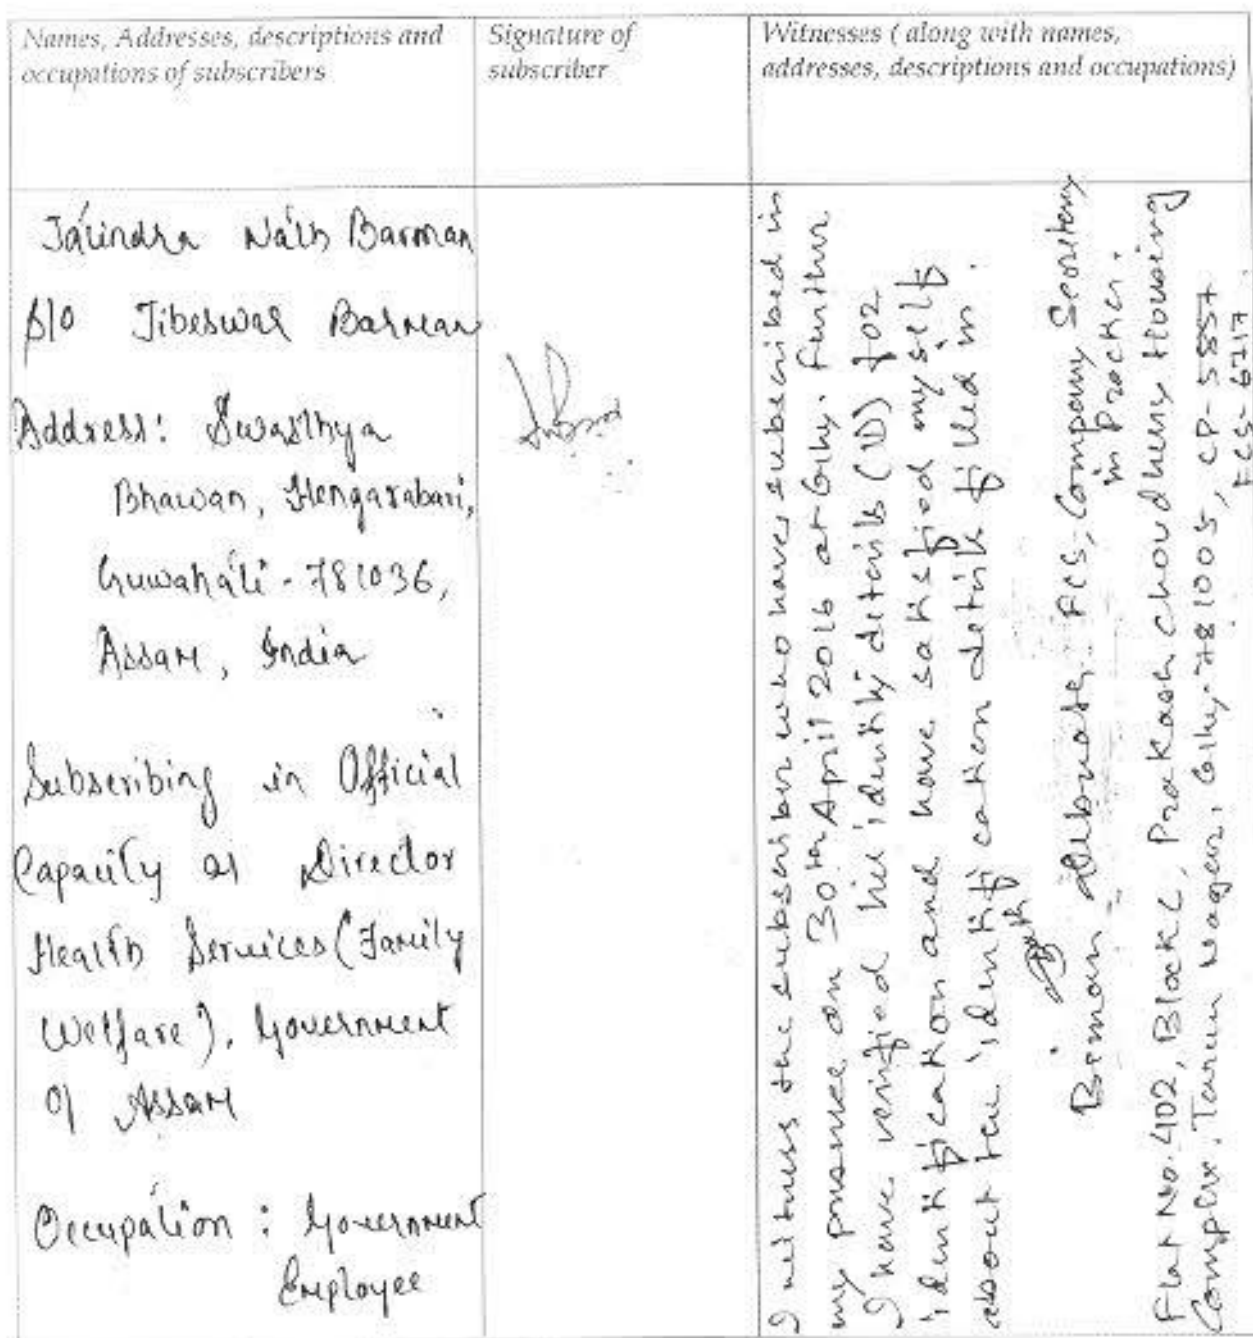 Names, Addresses, descriptions and
occupations of subscribers
Signature of
subscriber
Witnesses ( along with names,
addresses, descriptions and occupations)
Jatindra Nath Barman
S/O Jibeswar Barman
Address: Swasthya
Bhawan, Hengarabari,
Guwahati - 781036,
Assam, India
Subscribing in Official
Capacity as Director
Health Services (Family
Welfare), Government
of Assam
Occupation : Government
Employee
I witness the subscriber who have subscribed in
my presence on 30th April 2016 at Ghy. Further
I have verified his identity details (ID) for
identification and have satisfied myself
about the identification details filled in.
Biman Debnath, FCS, Company Secretary
in Practice.
Flat No. 402, Block C, Prakash Choudhury Housing
Complex, Tarun Nagar, Ghy-781005, CP-5857
FCS-6717.